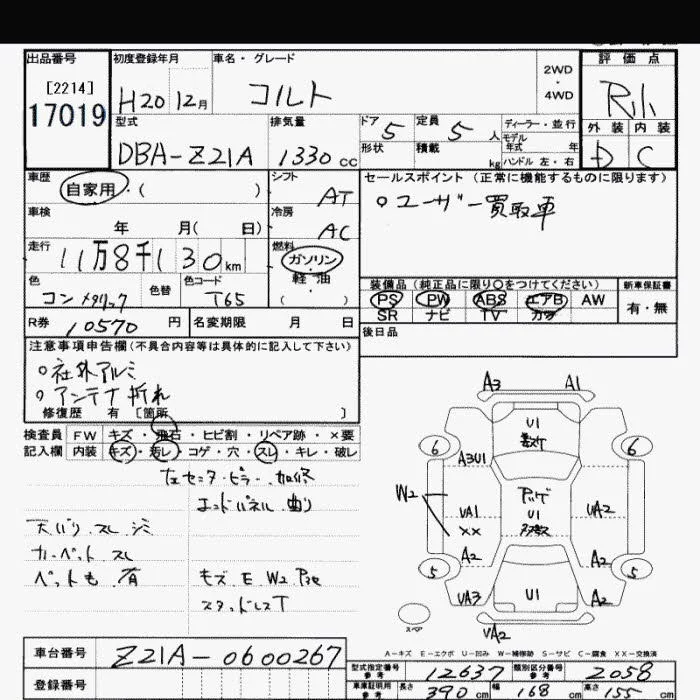 出品番号 初度登録年月 車名・グレード 評価点
[2214] 2WD
・
17019 H20 12月 コルト 4WD R
外装 内装
D C
型式 排気量 ドア 定員 ディーラー・並行
DBA-Z21A 1330cc 5 5人 モデル年式 年
形状 積載 kg ハンドル 左・右
車歴 シフト セールスポイント (正常に機能するものに限ります)
自家用・( ) AT ○ユーザー買取車
車検 冷房
年 月( 日) AC
走行 燃料
11万8千130km ガソリン・
軽油・
( )
色 色替 色コード 装備品 (純正品に限り○をつけてください) 新車保証書
コンメタリック T65 PS PW ABS エアB AW 有・無
SR ナビ TV カワ
R券 10570円 名変期限 月 日 後日品
注意事項申告欄(不具合内容等は具体的に記入して下さい)
○社外アルミ
○アンテナ折れ
修復歴 有 [箇所 ]
検査員 FW キズ・飛石・ヒビ割・リペア跡・×要
記入欄 内装 キズ・汚レ・コゲ・穴・スレ・キレ・破レ
左センターピラー 加修
エンドパネル 曲り
天バリ スレ シミ
カーペット スレ
ペットも 有 キズ E W2 P有
スタッドレスT
A3 A1
U1
6 6
A3U1
W2 UA1 U1 UA2
XX
A2 A2
5 5
UA3 U1 A2
スペア UA2
A-キズ E-エクボ U-凹み W-補修跡 S-サビ C-腐食 XX-交換済
車台番号 Z21A-0600267 型式指定番号 参考 12637 類別区分番号 参考 2058
登録番号 車庫証明用 参考 長さ 390cm 幅 168cm 高さ 155cm